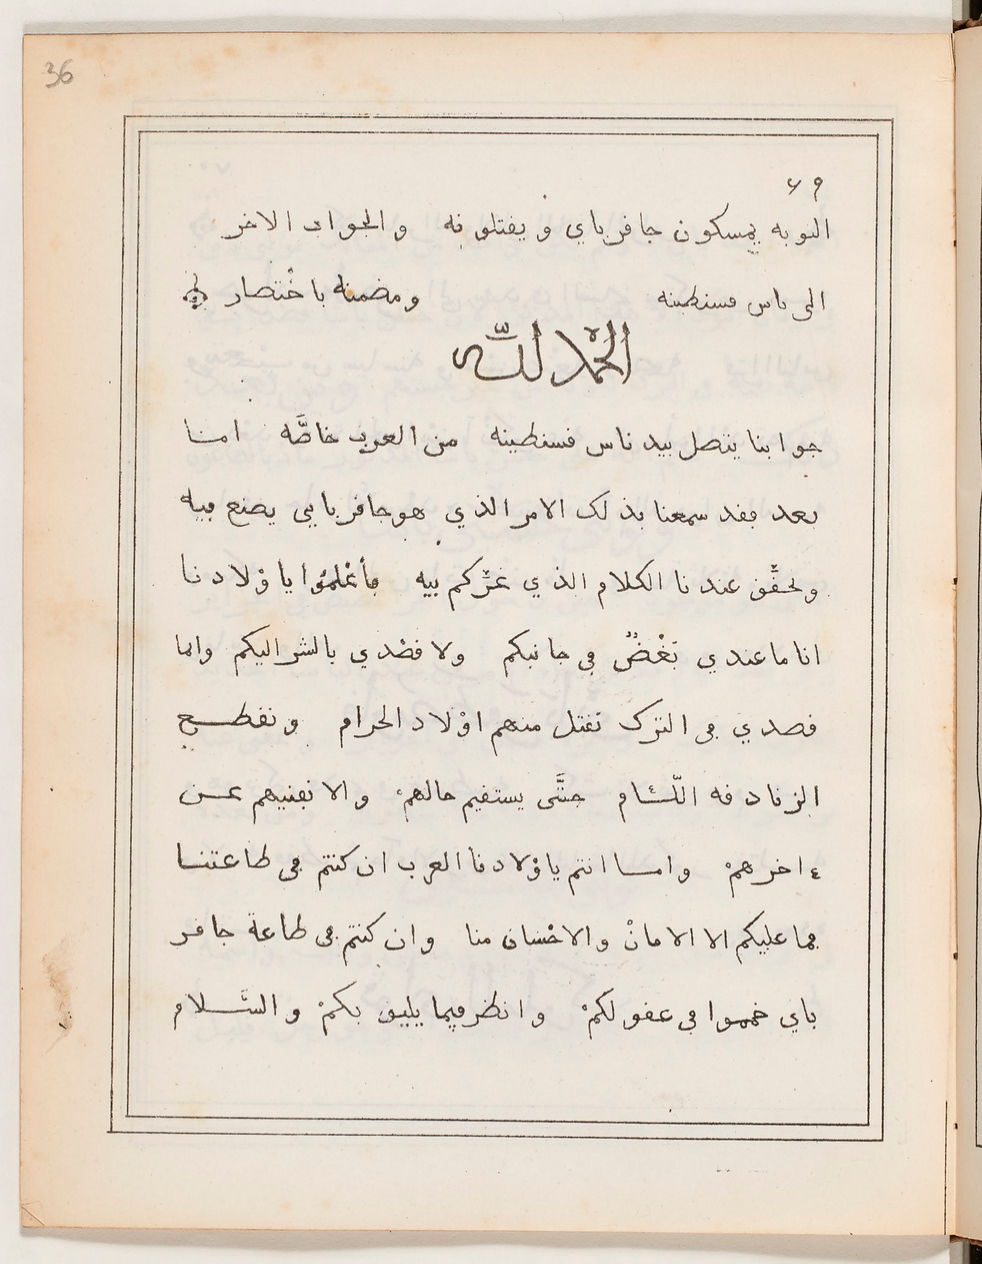 36
٦٩
النوبه يمسكون جافرباي ويقتلونه والجواب الاخر
الى ناس قسنطينه ومضمنه باخْتصار
الحمْد للّه
جوابنا يتصل بيد ناس قسنطينه من العرب خاصَّه امــا
بعد فقد سمعنا بذلك الامر الذي هو جافر بايي يصنع فيه
وتحقّق عندنا الكلام الذي غرّكم بيه فأعْلمُوا ياوْلادنا
انا ما عندي بَغْضٌ في جانبكم ولا قصْدي بالشر اليكم وانما
قصدي في الترك نقتل منهم اوْلاد الحرام ونقطــع
الزنادقه اللّــئام حتَّى يستقيم حالهمْ والا نفنيهم عــن
ءاخرهمْ وامــا انتم ياوْلادنا العرب ان كنتم في طاعتنــا
فما عليكم الا الامانْ والاحْسان منا وان كنتم في طاعة جافر
باي خمموا في عقولكمْ وانظر فيما يليق بكمْ والسَّــلام